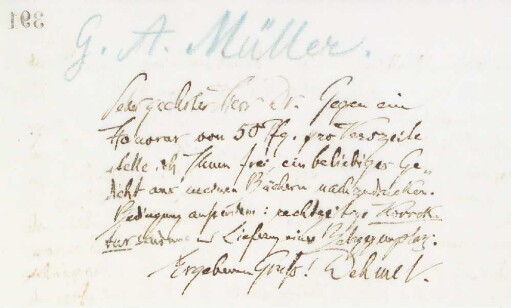 391
G. A. Müller.
Sehr geehrter Herr Dr. Gegen ein
Honorar von 50 Pfg. pro Verszeile
stelle ich Ihnen frei, ein beliebiges Ge-
dicht aus meinen Büchern nachzudrucken.
Bedingung außerdem: rechtzeitige Korrek-
tursendung u Lieferung eines Belegexemplars.
Ergebenen Gruß! Dehmel.